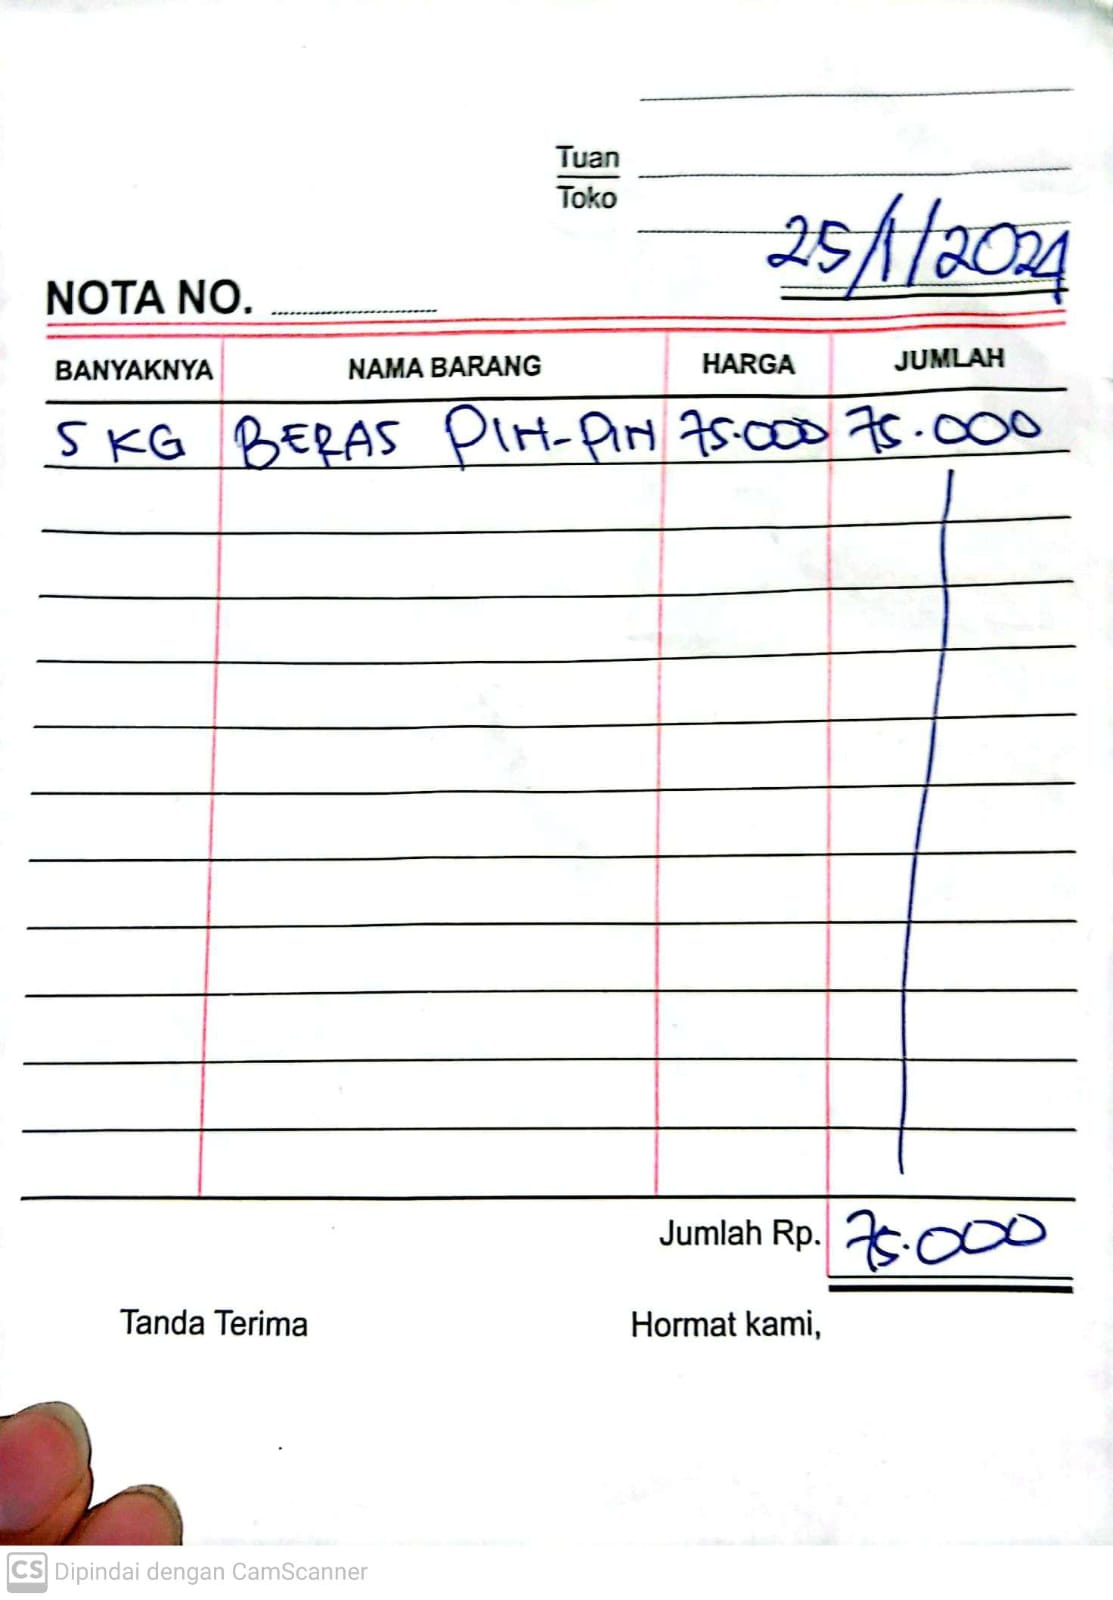 Tuan
Toko
25/1/2024
NOTA NO. ....................
BANYAKNYA NAMA BARANG HARGA JUMLAH
5 KG BERAS PIH-PIH 75.000 75.000
Jumlah Rp. 75.000
Tanda Terima Hormat kami,
CS Dipindai dengan CamScanner